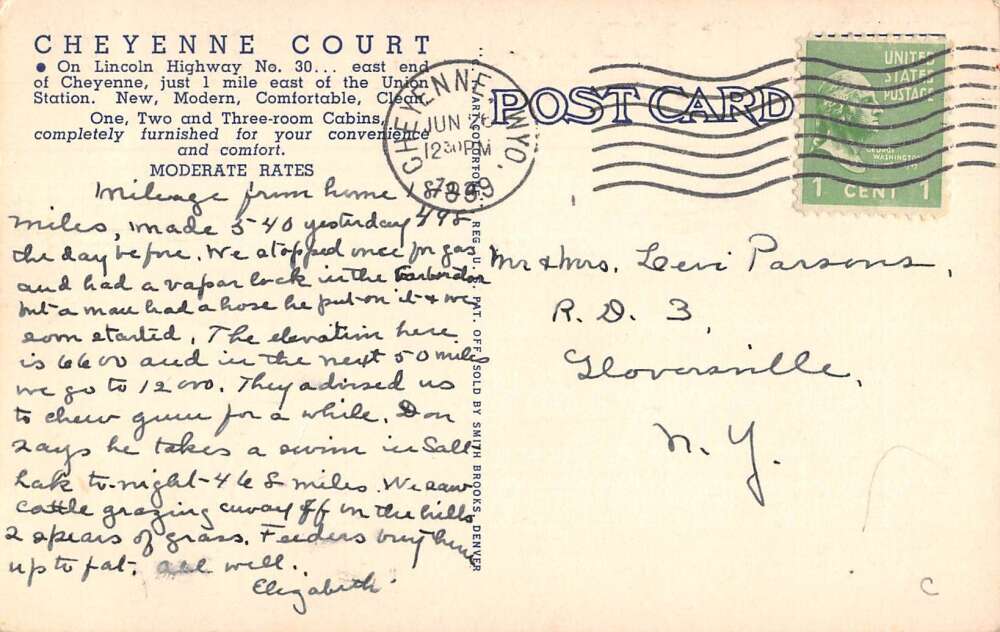 CHEYENNE COURT
● On Lincoln Highway No. 30... east end
of Cheyenne, just 1 mile east of the Union
Station. New, Modern, Comfortable, Clean
One, Two and Three-room Cabins,
completely furnished for your convenience
and comfort.
MODERATE RATES
Mileage from home
miles, made 540 yesterday 498
the day before. We stopped once for gas
and had a vapar lock in the
but a man had a hose he put on it + we
soon started. The elevation here
is 6600 and in the next 50 miles
we go to 12000. They advised us
to chew gum for a while. Don
says he takes a swim in Salt
Lak to-night - 468 miles. We saw
cattle grazing away off in the hills
2 spears of grass. Feeders buy here
up to fat. all well.
Elizabeth
REG. U. S. PAT. OFF. SOLD BY SMITH BROOKS, DENVER
CHEYENNE WYO.
JUN 26
12 30 PM
1939
POST CARD
UNITED
STATES
POSTAGE
GEORGE
WASHINGTON
1 CENT 1
Mr & Mrs. Levi Parsons,
R. D. 3,
Gloversville,
N. Y.
C